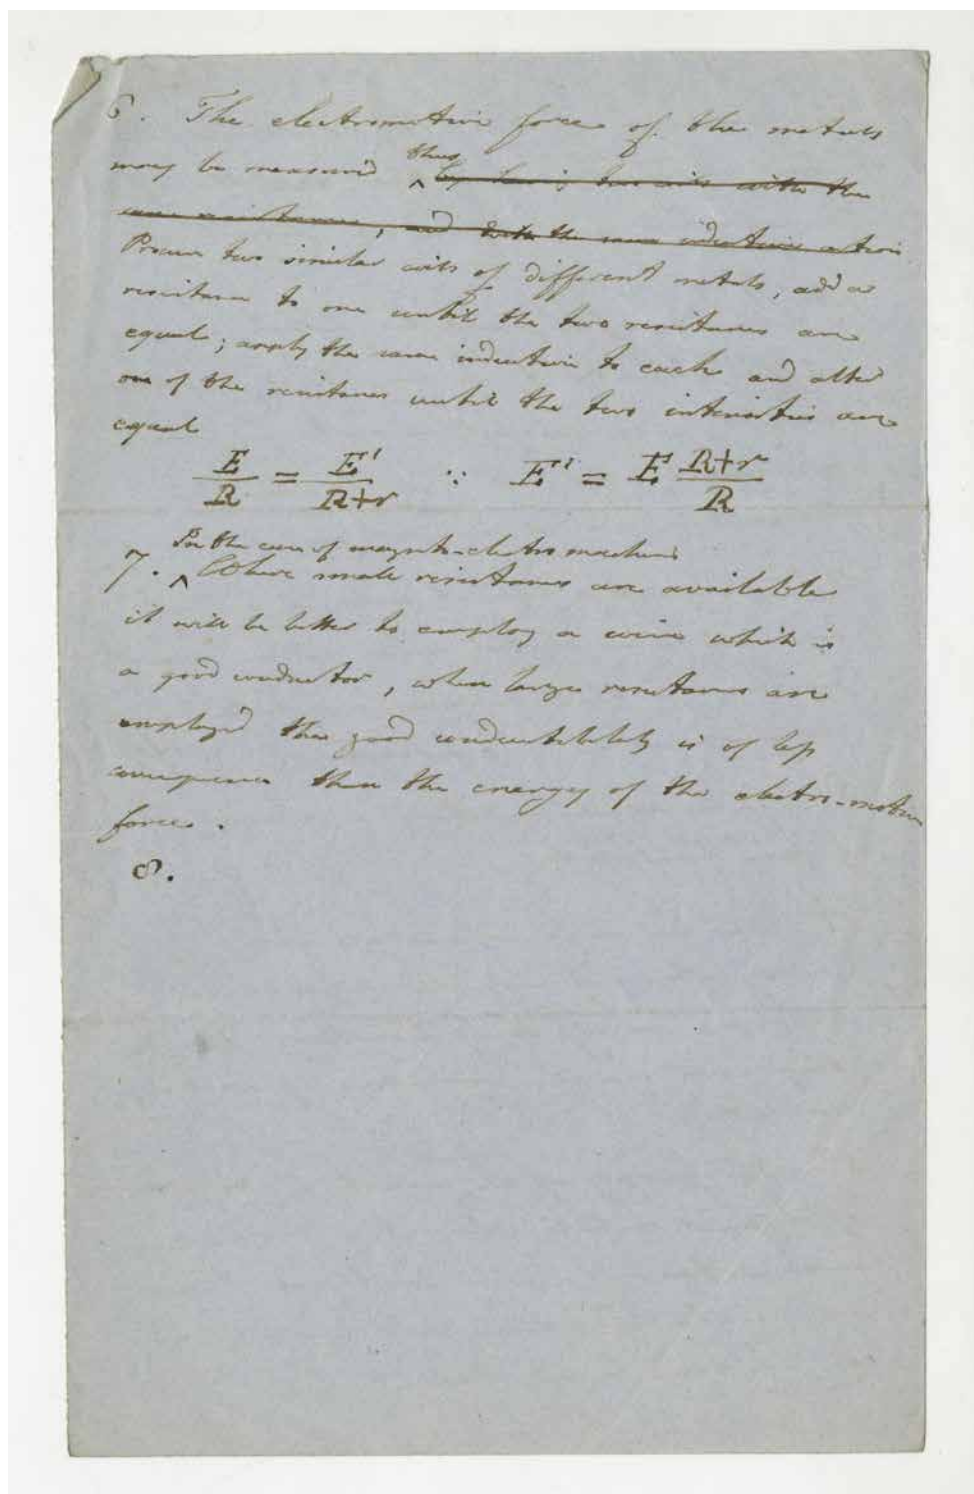 6. The electromotive forces of the metals
may be measured thus by having two coils with the
same resistance, and with the same inductive action.
Procure two similar coils of different metals, add a
resistance to one until the two resistances are
equal; apply the same inductive to each and alter
one of the resistances until the two intensities are
equal
E/R = E'/R+r ∵ E' = E R+r/R
In the case of magneto-electro machines
7. Where small resistances are available
it will be better to employ a wire which is
a good conductor, when large resistances are
employed the good conductibility is of less
consequence than the energy of the electro-motive
force.
8.